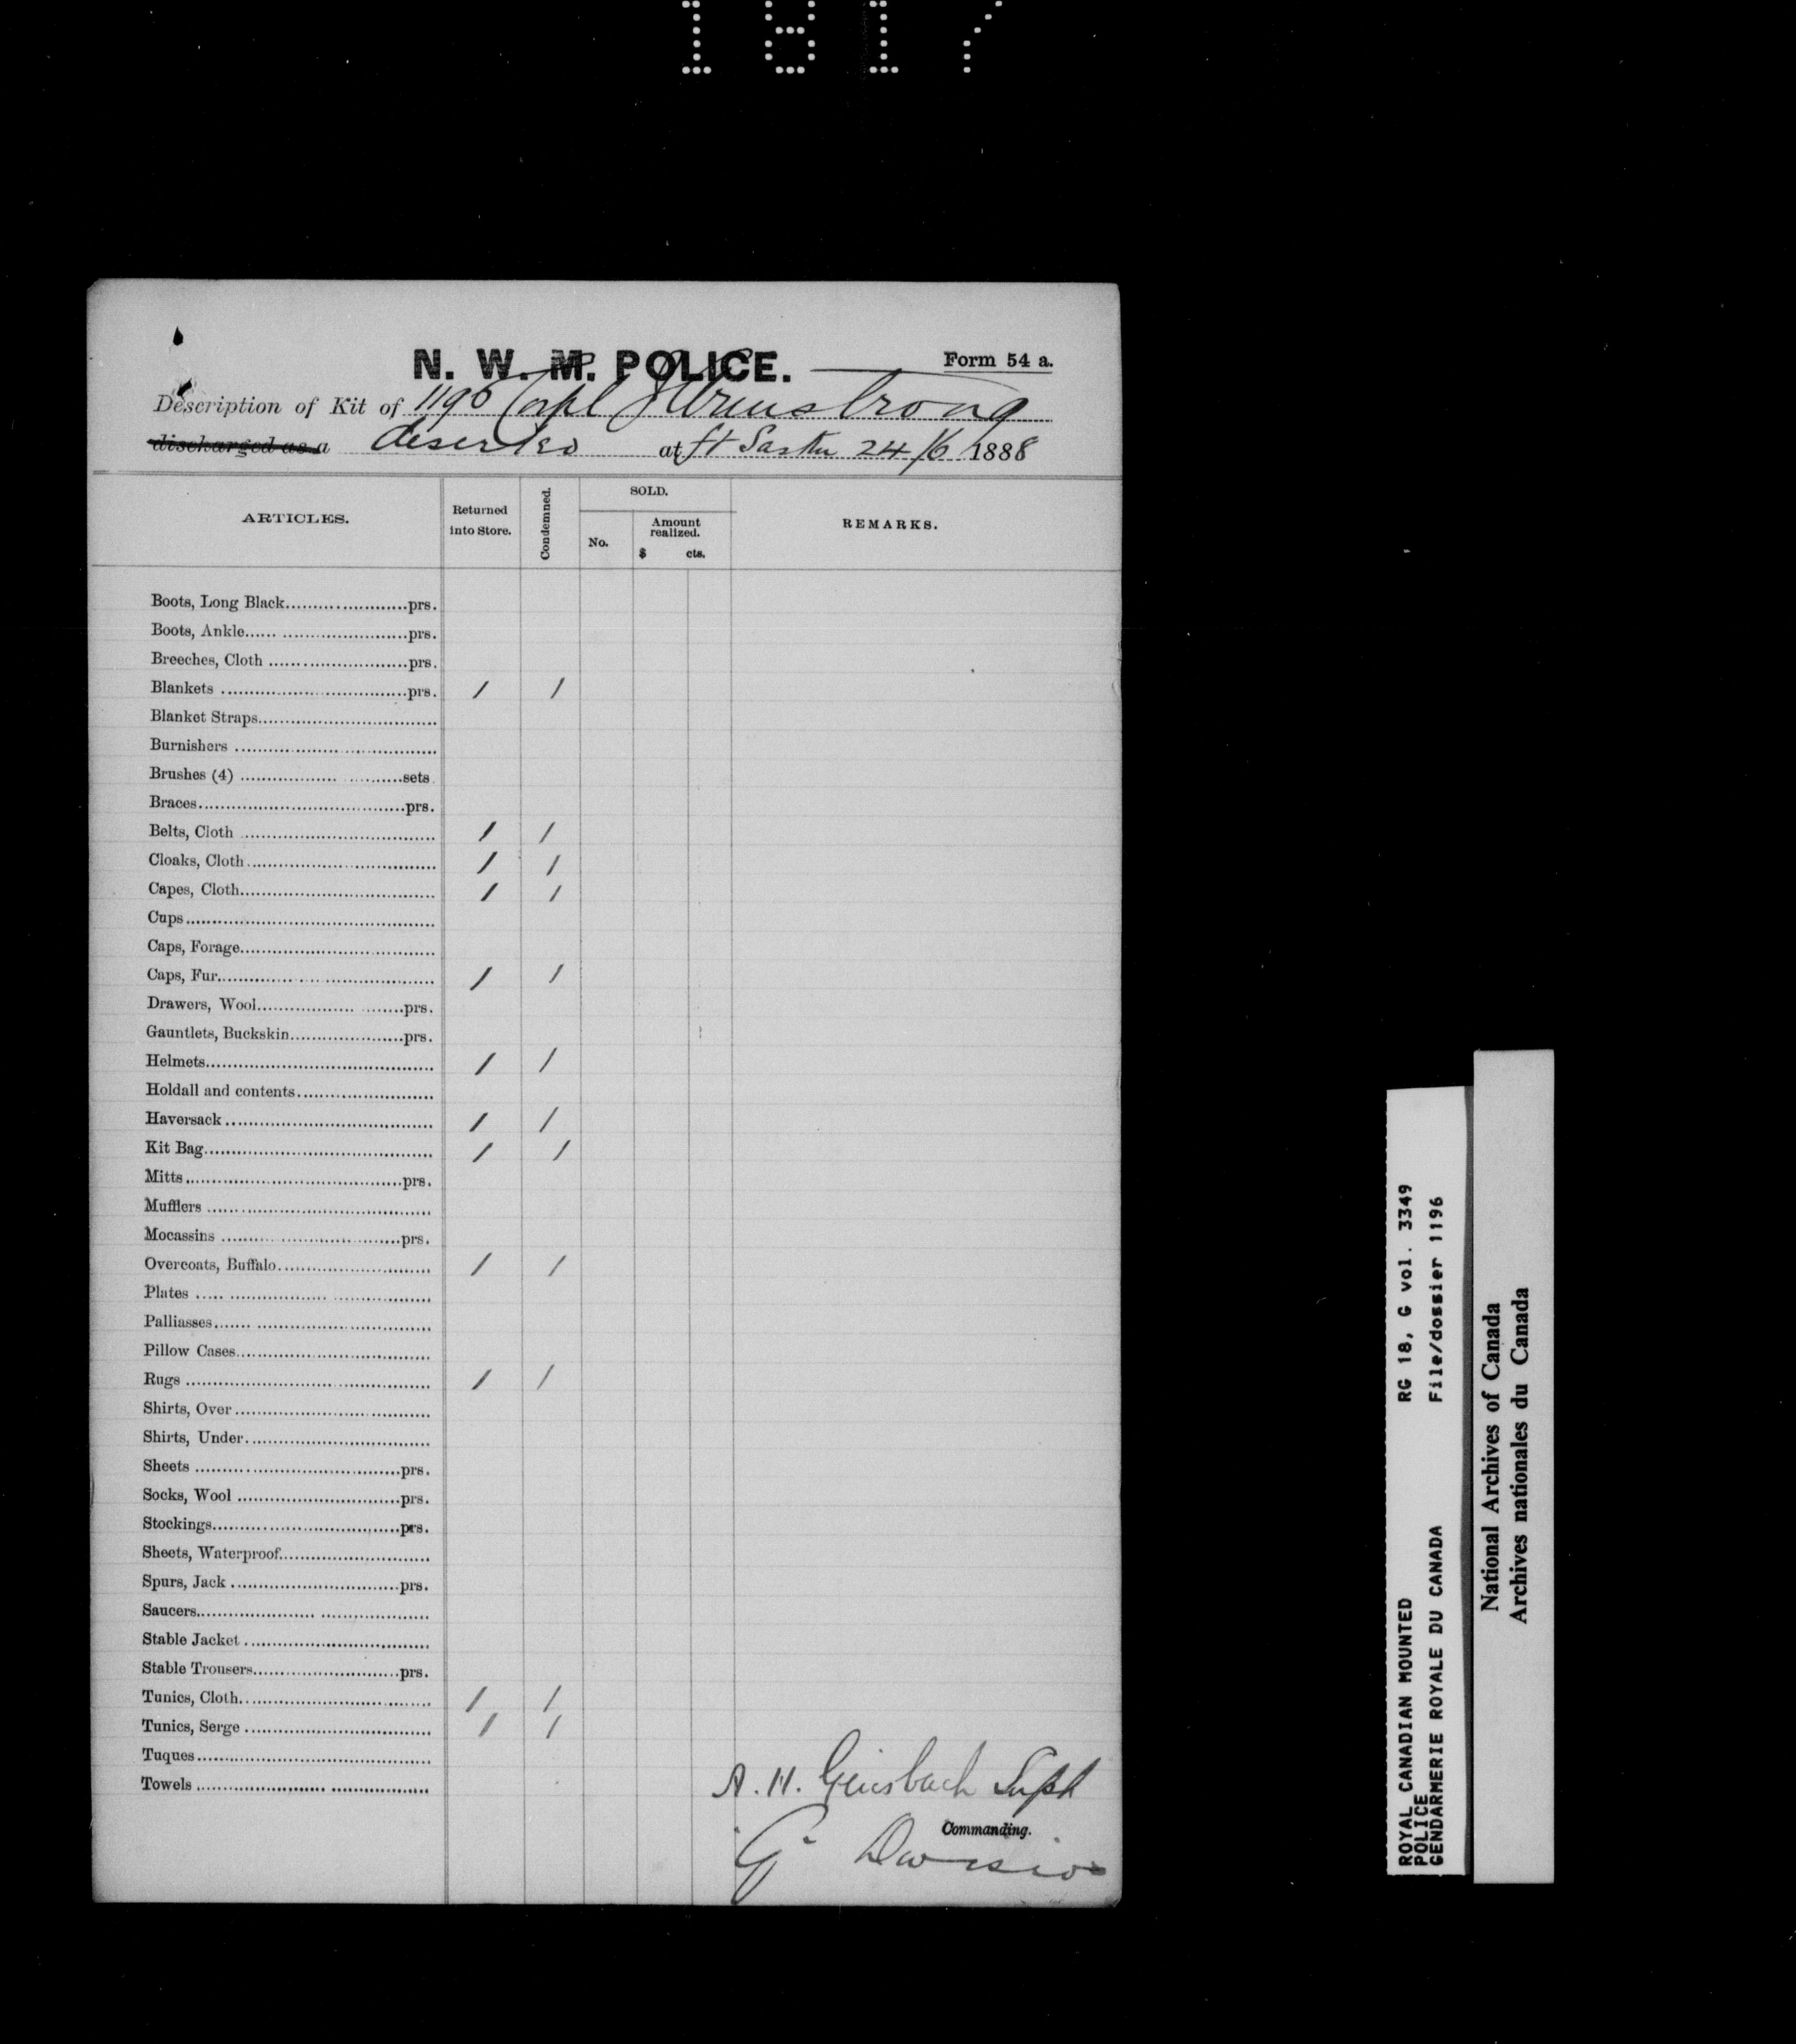 1817
N. W. M. POLICE.
Form 54 a.
Description of Kit of 1196 Corpl J Armstrong
discharged as a deserted at ft Saskn 24/6 1888
ARTICLES.
Returned into Store.
Condemned.
SOLD.
No.
Amount realized.
$ cts.
REMARKS.
Boots, Long Black prs.
Boots, Ankle prs.
Breeches, Cloth prs.
Blankets prs. 1 1
Blanket Straps
Burnishers
Brushes (4) sets
Braces prs.
Belts, Cloth 1 1
Cloaks, Cloth 1 1
Capes, Cloth 1 1
Cups
Caps, Forage
Caps, Fur 1 1
Drawers, Wool prs.
Gauntlets, Buckskin prs.
Helmets 1 1
Holdall and contents
Haversack 1 1
Kit Bag 1 1
Mitts prs.
Mufflers
Mocassins prs.
Overcoats, Buffalo 1 1
Plates
Palliasses
Pillow Cases
Rugs 1 1
Shirts, Over
Shirts, Under
Sheets prs.
Socks, Wool prs.
Stockings prs.
Sheets, Waterproof
Spurs, Jack prs.
Saucers
Stable Jacket
Stable Trousers prs.
Tunics, Cloth 1 1
Tunics, Serge 1 1
Tuques
Towels
A. H. Griesbach Supt
Commanding.
G Division
ROYAL CANADIAN MOUNTED RG 18, G vol. 3349
POLICE
GENDARMERIE ROYALE DU CANADA File/dossier 1196
National Archives of Canada
Archives nationales du Canada